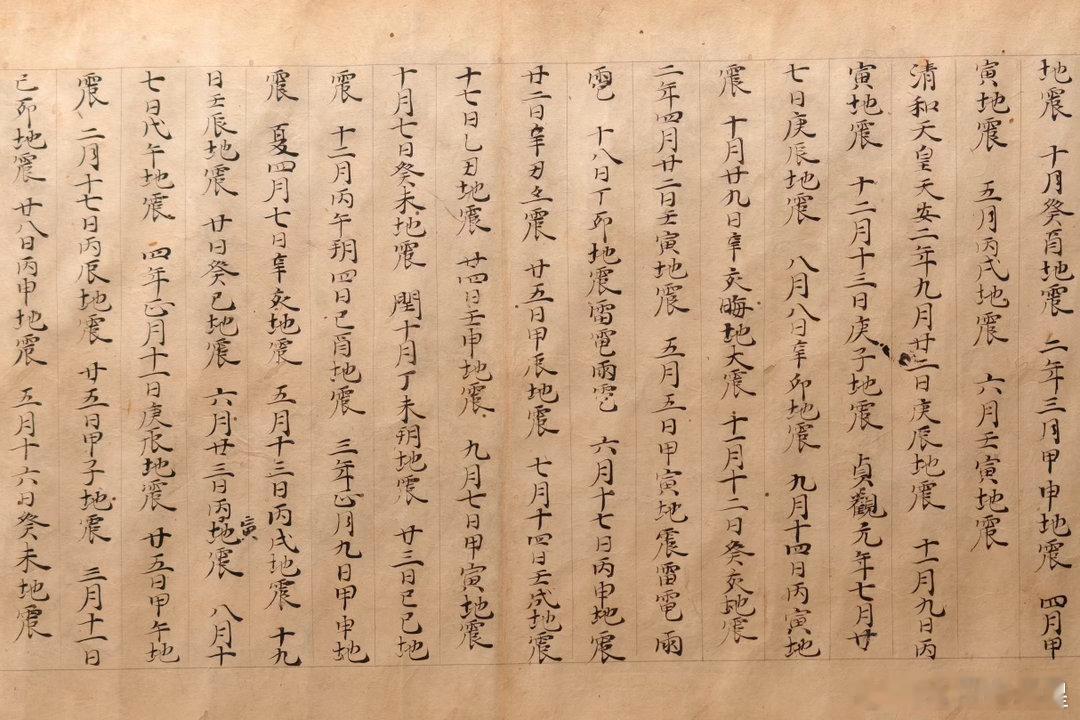 地震 十月癸酉地震 二年三月甲申地震 四月甲
寅地震 五月丙戌地震 六月壬寅地震
清和天皇天安二年九月廿一日庚辰地震 十一月九日丙
寅地震 十二月十三日庚子地震 貞觀元年七月廿
七日庚辰地震 八月八日辛卯地震 九月十四日丙寅地
震 十月廿九日辛亥晦地大震 十一月十二日癸亥地震
二年四月廿二日壬寅地震 五月五日甲寅地震雷電雨
雹 十八日丁卯地震雷電雨雹 六月十七日丙申地震
廿二日辛丑並震 廿五日甲辰地震 七月十四日壬戌地震
十七日乙丑地震 廿四日壬申地震 九月七日甲寅地震
十月七日癸未地震 閏十月丁未朔地震 廿三日己巳地
震 十二月丙午朔四日己酉地震 三年正月九日甲申地
震 夏四月七日辛亥地震 五月十三日丙戌地震 十九
日壬辰地震 廿日癸巳地震 六月廿三日丙寅地震 八月十
七日戊午地震 四年正月十一日庚辰地震 廿五日甲午地
震 二月十七日丙辰地震 廿五日甲子地震 三月十一日
己卯地震 廿八日丙申地震 五月十六日癸未地震